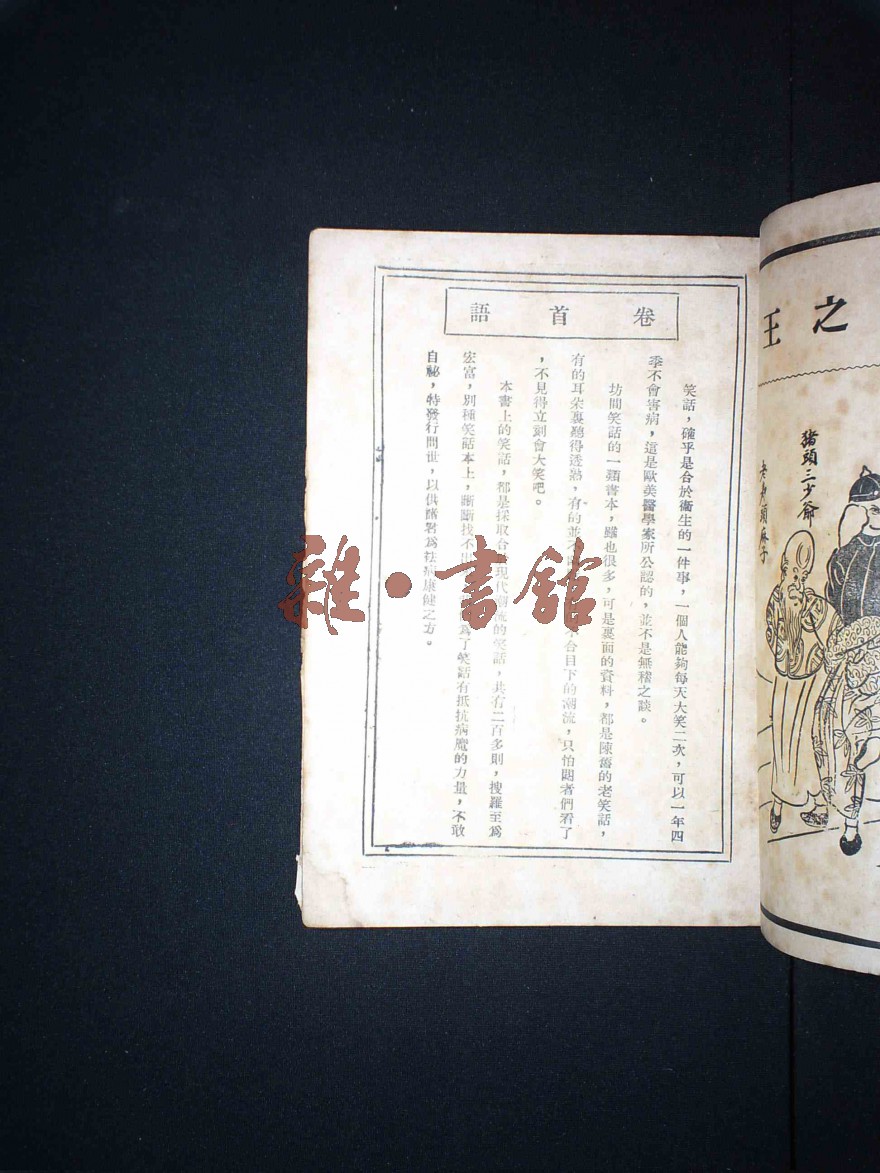 卷首語
笑話，確乎是合於衞生的一件事，一個人能夠每天大笑二次，可以一年四
季不會害病，這是歐美醫學家所公認的，並不是無稽之談。
坊間笑話的一類書本，雖也很多，可是裏面的資料，都是陳舊的老笑話，
有的耳朵裏聽得透熟，有的並不合目下的潮流，只怕閱者們看了
，不見得立刻會大笑吧。
本書上的笑話，都是採取合現代潮流的笑話，共有二百多則，搜羅至爲
宏富，別種笑話本上，斷斷找不出爲了笑話有抵抗病魔的力量，不敢
自祕，特發行問世，以供諸君爲祛病康健之方。
雜·書館
之王
豬頭三少爺